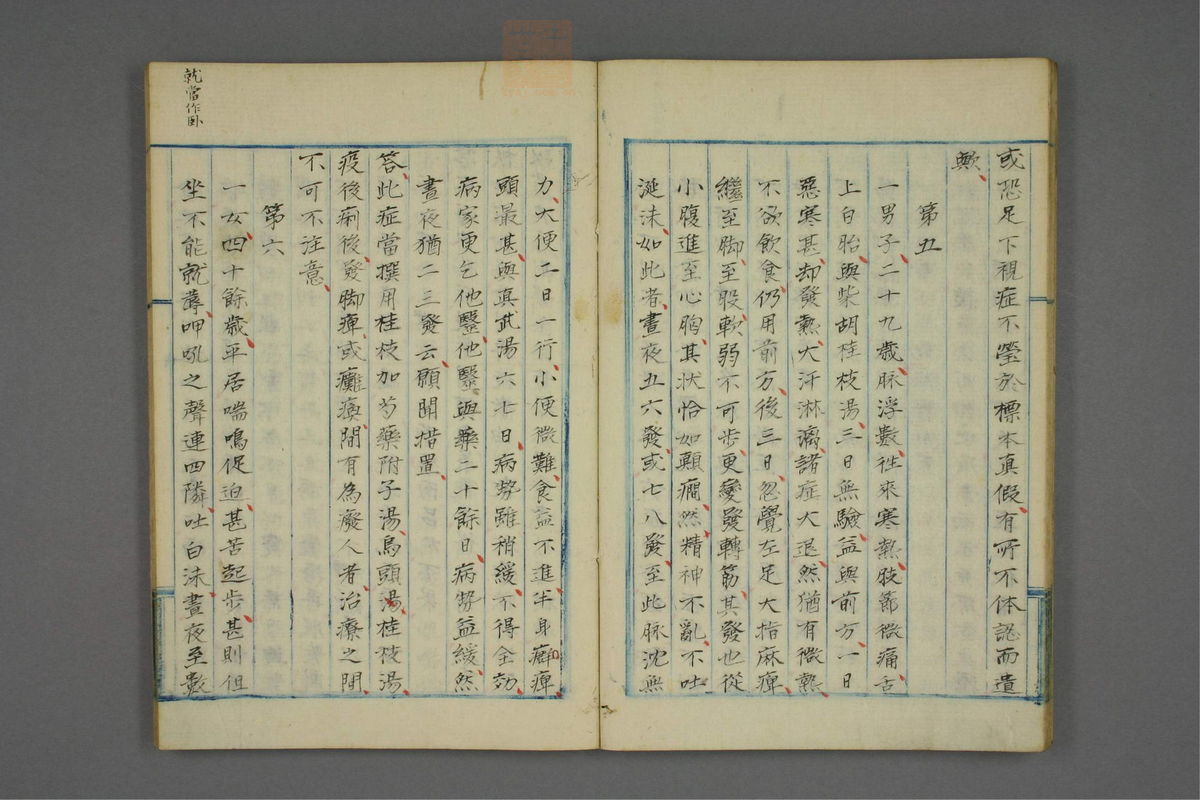 或恐足下視症不瑩於標本真假有所不体認而遺
歟
第五
一男子二十九歳脉浮數徃來寒熱肢節微痛舌
上白胎與柴胡桂枝湯三日無驗益與前方一日
惡寒甚却發熱大汗淋漓諸症大退然猶有微熱
不欲飲食仍用前方後三日忽覺左足大指麻痺
繼至脚至股軟弱不可歩更變發轉筋其發也從
小腹進至心胸其状恰如顚癇然精神不亂不吐
涎沫如此者晝夜五六發或七八發至此脉沈無
力大便二日一行小便微難食益不進半身痺
頭最甚與真武湯六七日病勢雖稍緩不得全効
病家更乞他醫他醫與藥二十餘日病勢益緩然
晝夜猶二三發云願聞措置
答此症當撰用桂枝加芍藥附子湯烏頭湯桂枝湯
疫後痢後發脚痺或癱瘓間有為癈人者治療之間
不可不注意
第六
一女四十餘歳平居喘鳴促迫甚苦起歩甚則但
坐不能就蓐呷吼之聲連四隣吐白沫晝夜至數
就當作卧